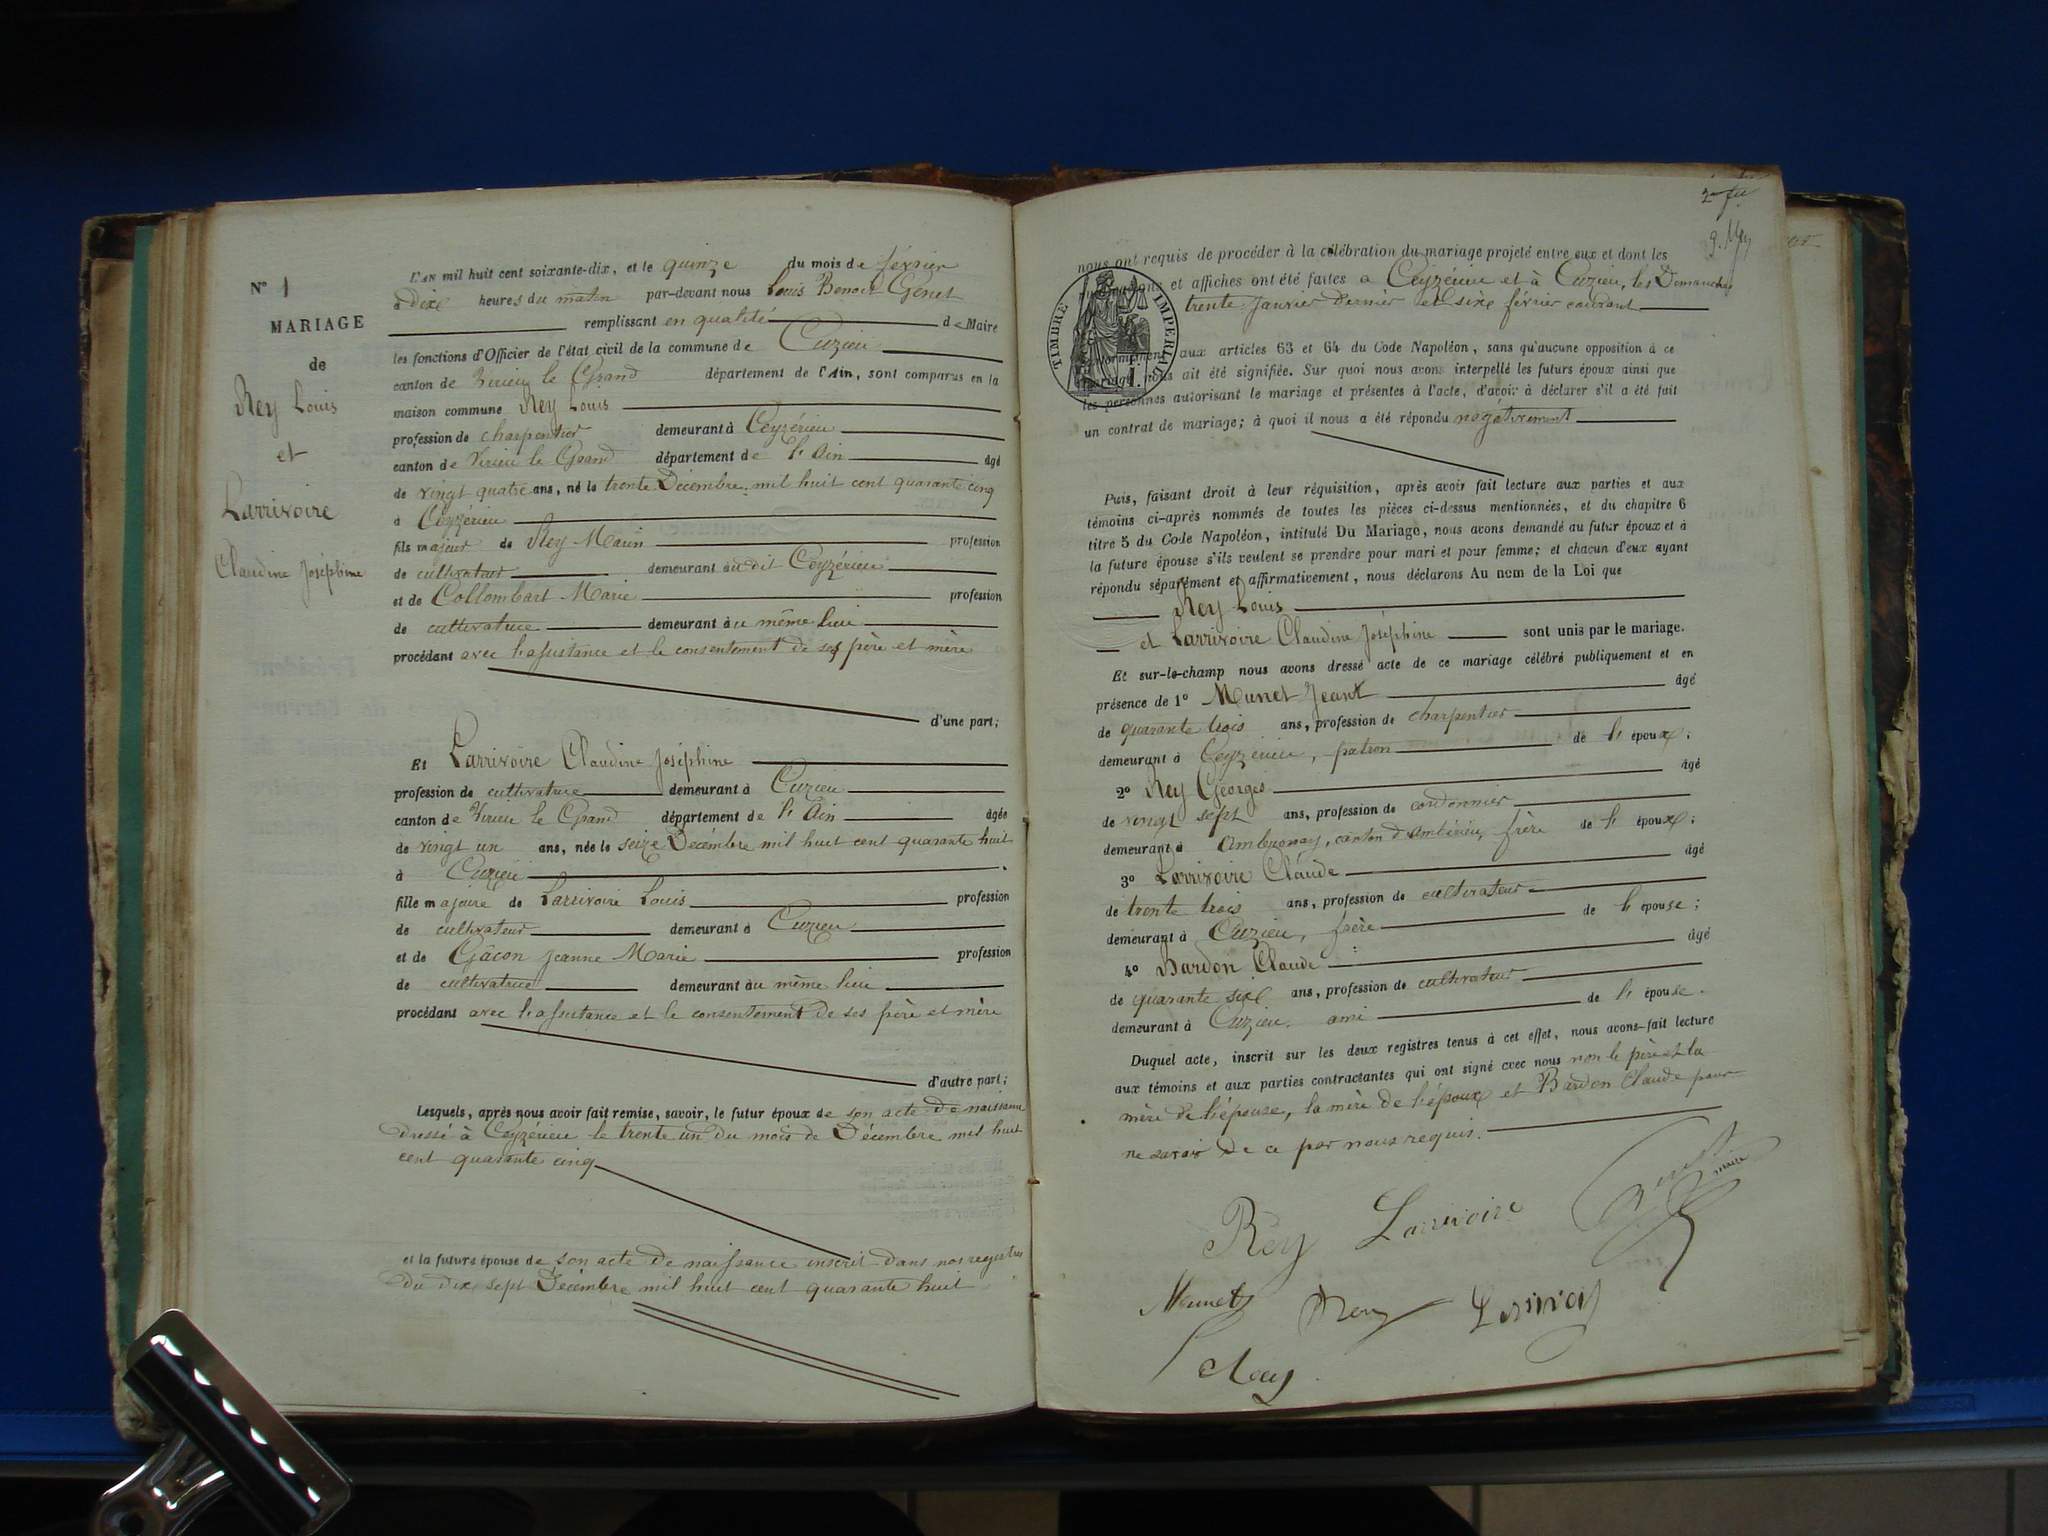 N° 1
MARIAGE
de
Rey Louis
et
Larrivoire
Claudine Joséphine
L'AN mil huit cent soixante-dix, et le quinze du mois de février
à dix heures du matin par-devant nous Louis Benoit Genet
remplissant en qualité de Maire
les fonctions d'Officier de l'état civil de la commune de Cuzieu
canton de Virieu le Grand département de l'Ain, sont comparus en la
maison commune Rey Louis
profession de charpentier demeurant à Ceyzérieu
canton de Virieu le Grand département de l'Ain âgé
de vingt quatre ans, né le trente Décembre mil huit cent quarante cinq
à Ceyzérieu
fils majeur de Rey Marin profession
de cultivateur demeurant au dit Ceyzérieu
et de Collombart Marie profession
de cultivatrice demeurant au même lieu
procédant avec l'assistance et le consentement de ses père et mère
d'une part;
Et Larrivoire Claudine Joséphine
profession de cultivatrice demeurant à Cuzieu
canton de Virieu le Grand département de l'Ain âgée
de vingt un ans, née le seize Décembre mil huit cent quarante huit
à Cuzieu
fille majeure de Larrivoire Louis profession
de cultivateur demeurant à Cuzieu
et de Gâcon Jeanne Marie profession
de cultivatrice demeurant au même lieu
procédant avec l'assistance et le consentement de ses père et mère
d'autre part;
Lesquels, après nous avoir fait remise, savoir, le futur époux de son acte de naissance
dressé à Ceyzérieu le trente un du mois de Décembre mil huit
cent quarante cinq
et la future épouse de son acte de naissance inscrit dans nos registres
du dix sept Décembre mil huit cent quarante huit
nous ont requis de procéder à la célébration du mariage projeté entre eux et dont les
et affiches ont été faites à Ceyzérieu et à Cuzieu, les Dimanches
trente Janvier dernier et six février courant
TIMBRE IMPERIAL
aux articles 63 et 64 du Code Napoléon, sans qu'aucune opposition à ce
mariage nous ait été signifiée. Sur quoi nous avons interpellé les futurs époux ainsi que
les personnes autorisant le mariage et présentes à l'acte, d'avoir à déclarer s'il a été fait
un contrat de mariage; à quoi il nous a été répondu négativement
Puis, faisant droit à leur réquisition, après avoir fait lecture aux parties et aux
témoins ci-après nommés de toutes les pièces ci-dessus mentionnées, et du chapitre 6
titre 5 du Code Napoléon, intitulé Du Mariage, nous avons demandé au futur époux et à
la future épouse s'ils veulent se prendre pour mari et pour femme; et chacun d'eux ayant
répondu séparément et affirmativement, nous déclarons Au nom de la Loi que
Rey Louis
et Larrivoire Claudine Joséphine sont unis par le mariage.
Et sur-le-champ nous avons dressé acte de ce mariage célébré publiquement et en
présence de 1° Munet Jean âgé
de quarante trois ans, profession de charpentier
demeurant à Ceyzérieu, patron de l'époux;
2° Rey Georges âgé
de vingt sept ans, profession de cordonnier
demeurant à Ambronay, canton d'Ambérieu, frère de l'époux;
3° Larrivoire Claude âgé
de trente trois ans, profession de cultivateur
demeurant à Cuzieu, frère de l'épouse;
4° Bardon Claude âgé
de quarante six ans, profession de cultivateur
demeurant à Cuzieu. ami de l'épouse.
Duquel acte, inscrit sur les deux registres tenus à cet effet, nous avons-fait lecture
aux témoins et aux parties contractantes qui ont signé avec nous non le père et la
mère de l'épouse, la mère de l'époux et Bardon Claude pour
ne savoir de ce par nous requis.
Rey Larrivoire
maire
Munet Rey Larrivoir
Rey